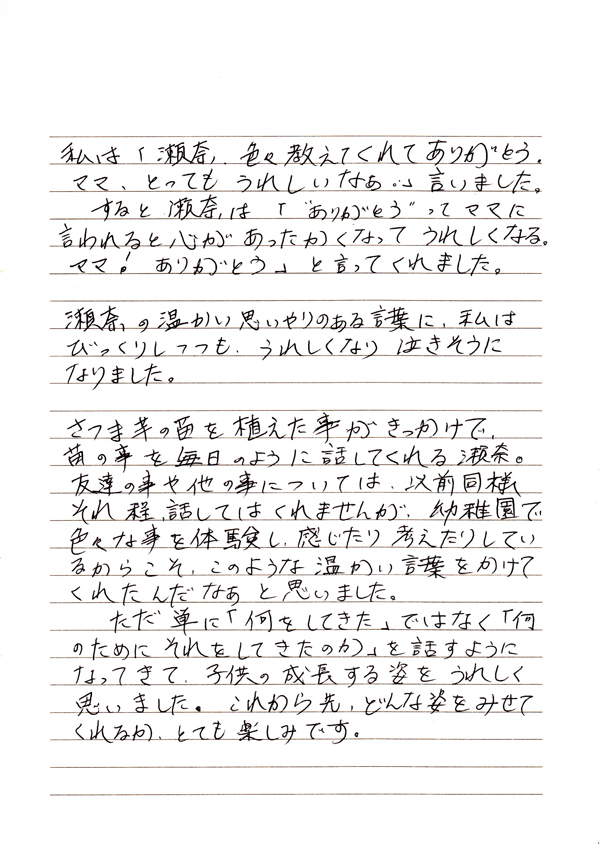 私は「瀬奈、色々教えてくれてありがとう。
ママ、とっても うれしいなぁ。」言いました。
すると 瀬奈は 「"ありがとう"ってママに
言われると心が あったかくなって うれしくなる。
ママ！ ありがとう」と言ってくれました。
瀬奈の温かい思いやりのある言葉に、私は
びっくりしつつも、うれしくなり 泣きそうに
なりました。
さつま芋の苗を植えた事がきっかけで、
苗の事を毎日のように話してくれる瀬奈。
友達の事や他の事については、以前同様、
それ程、話してはくれませんが、幼稚園で
色々な事を体験し、感じたり 考えたりしてい
るからこそ、このような温かい言葉をかけて
くれたんだなぁと思いました。
ただ単に「何をしてきた」ではなく「何
のためにそれをしてきたのか」を話すように
なってきて、子供の成長する姿をうれしく
思いました。これから先、どんな姿をみせて
くれるか、とても楽しみです。